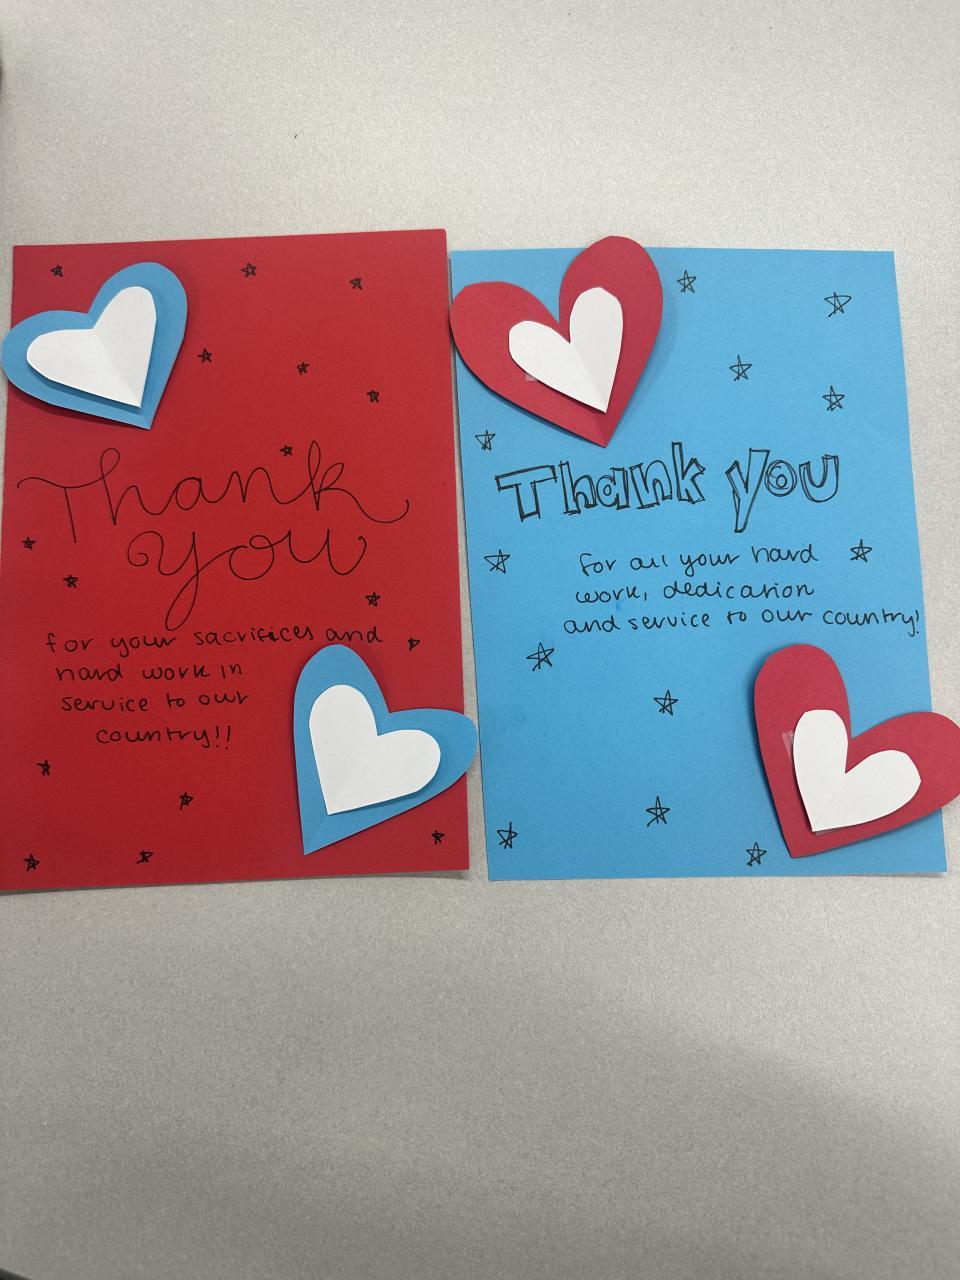 Thank
you
for your sacrifices and
hard work in
service to our
country!!
Thank you
for all your hard
work, dedication
and service to our country!